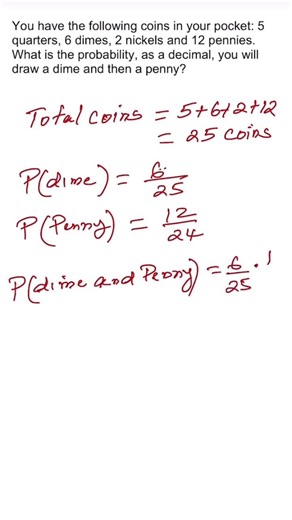 You have the following coins in your pocket: 5
quarters, 6 dimes, 2 nickels and 12 pennies.
What is the probability, as a decimal, you will
draw a dime and then a penny?
Total coins = 5+6+2+12
= 25 coins
P(dime) = 6/25
P(Penny) = 12/24
P(dime and Penny) = 6/25 · 1